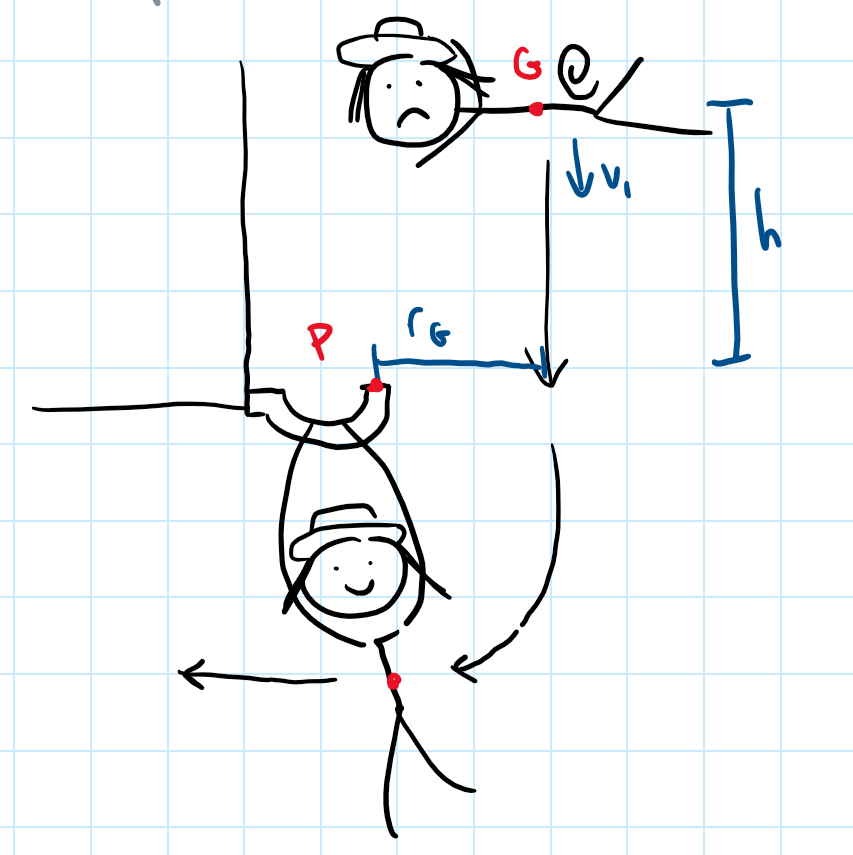 G
V₁
h
P
r_G